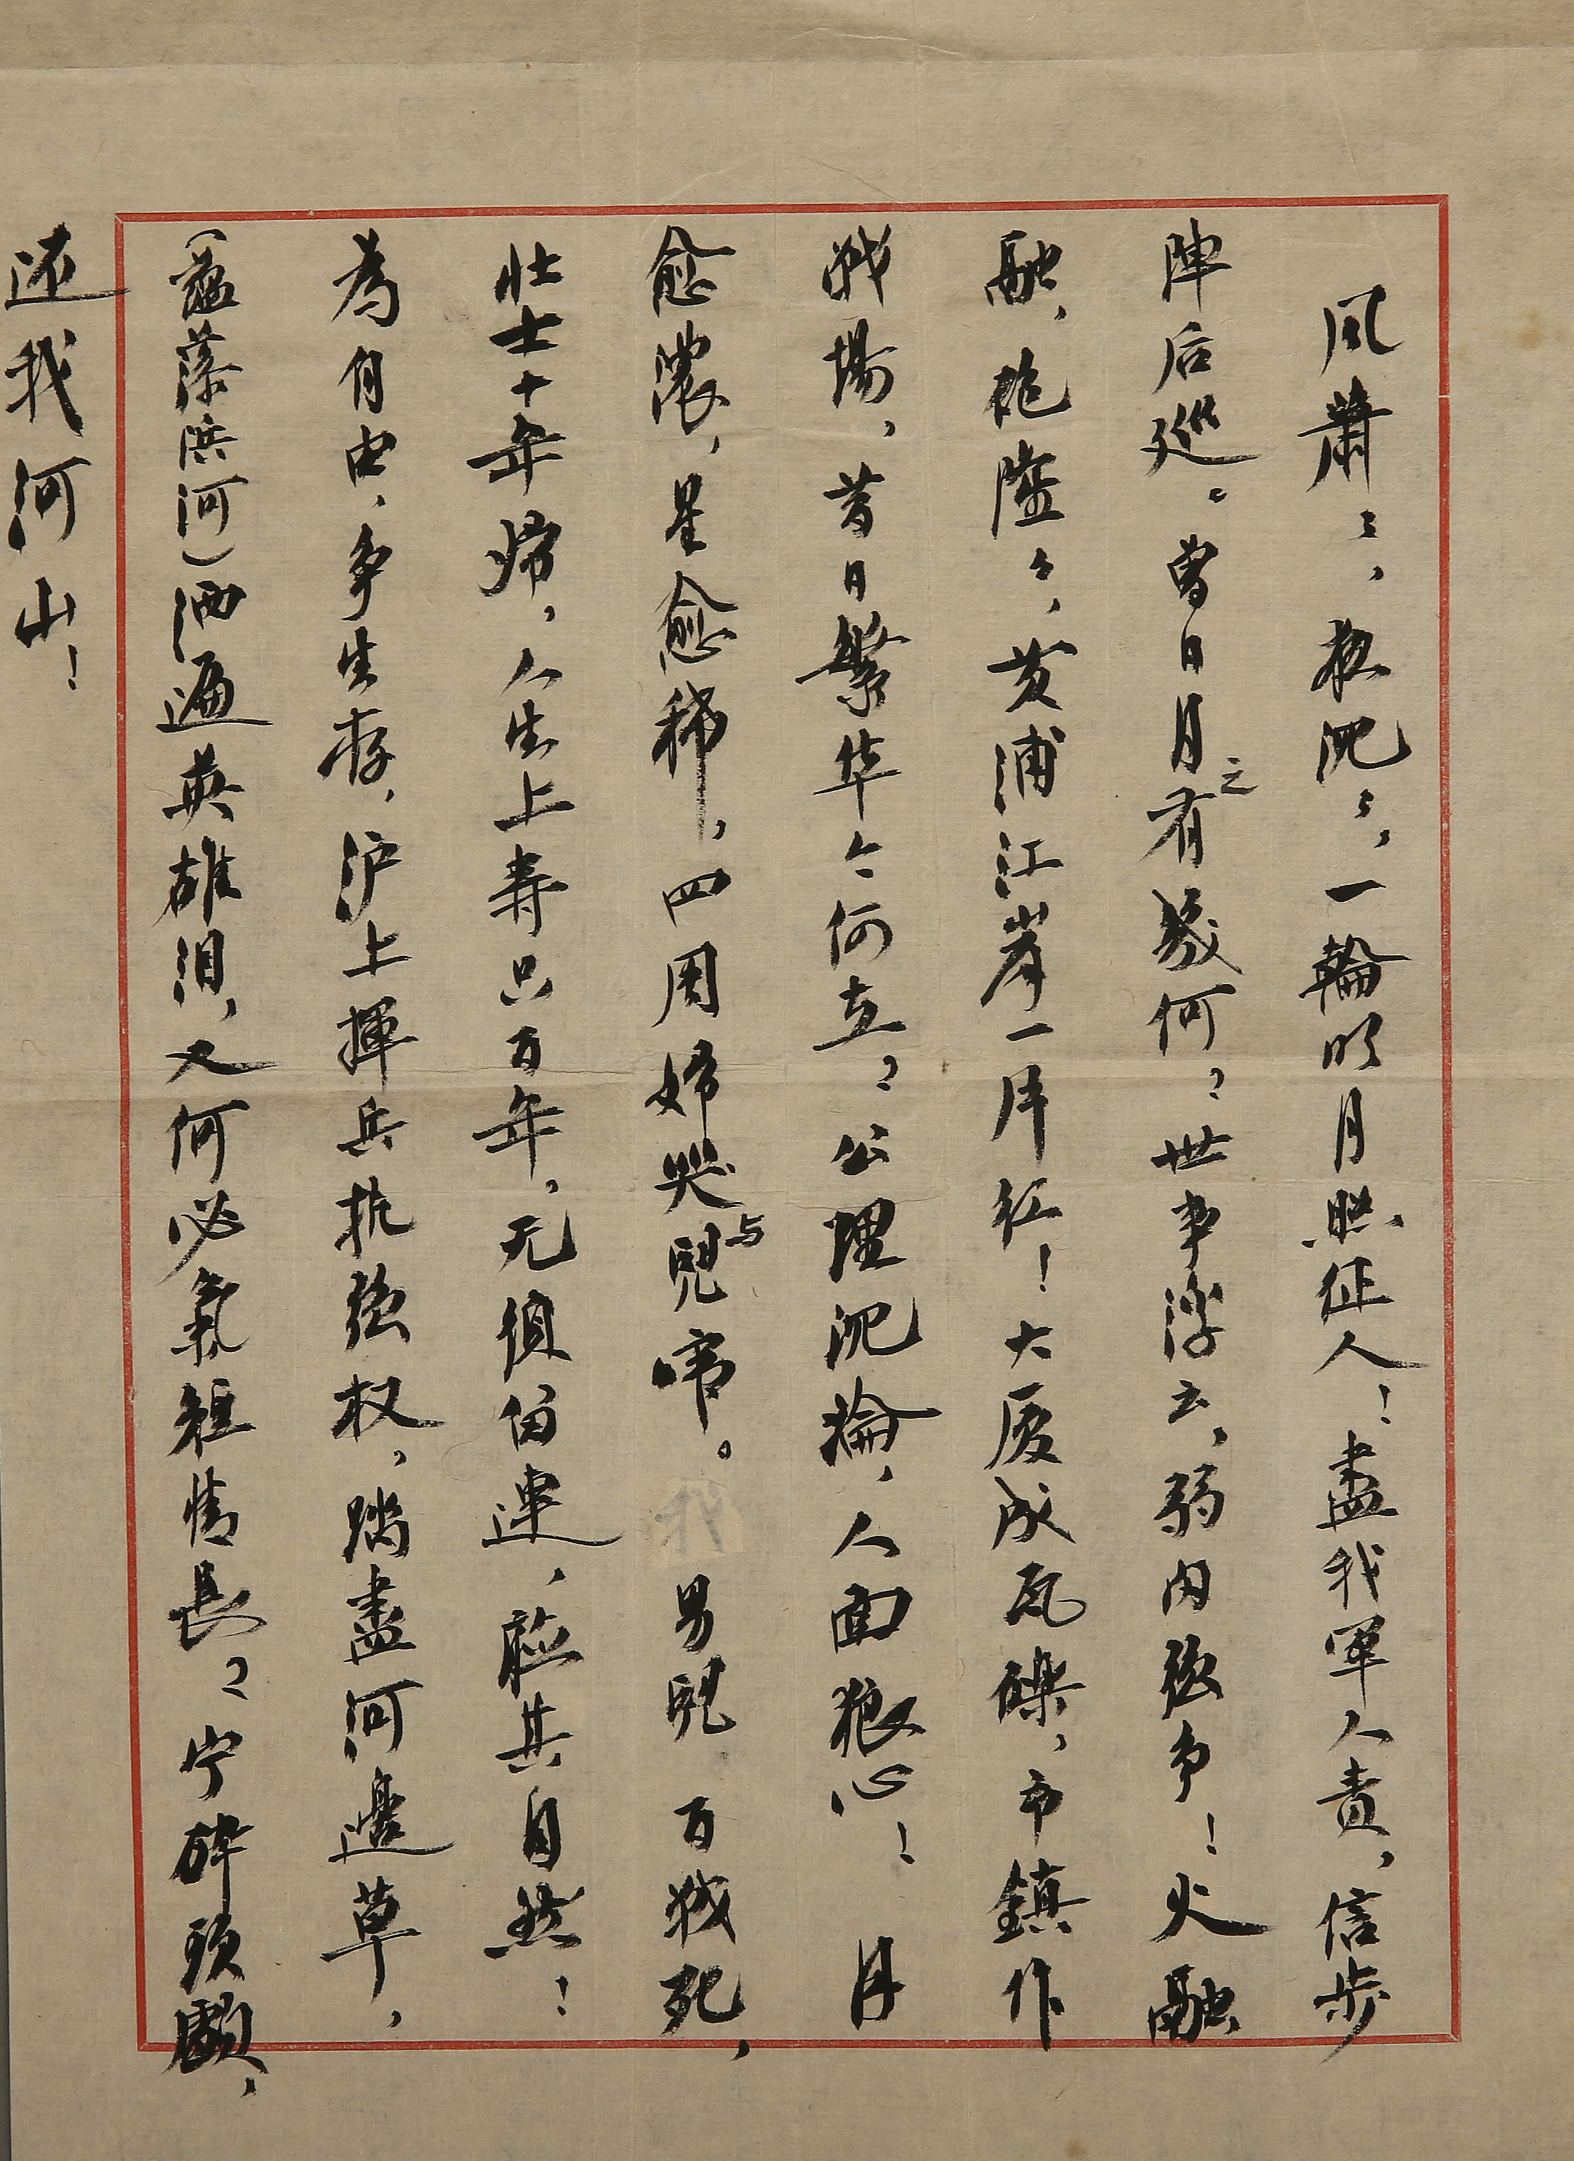 风蕭〻，夜沉〻，一輪明月照征人！盡我軍人責，信步
陣后巡。曾日月之有幾何？世事浮云，弱肉強争！火融
融，炮隆々，黄浦江岸一片红！大厦成瓦礫，市鎮作
战場，昔日繁华今何立？公理沉淪，人面狼心！月
愈濃，星愈稀，四周婦哭与兒啼。男兒百战死，
壮士十年歸，人生上寿只百年，无須留連，聽其自然！
为自由，争生存，沪上揮兵抗强权，踏盡河邊草，
（蕰藻浜河）洒遍英雄泪，又何必氣短情長？宁碎頭顱，
还我河山！